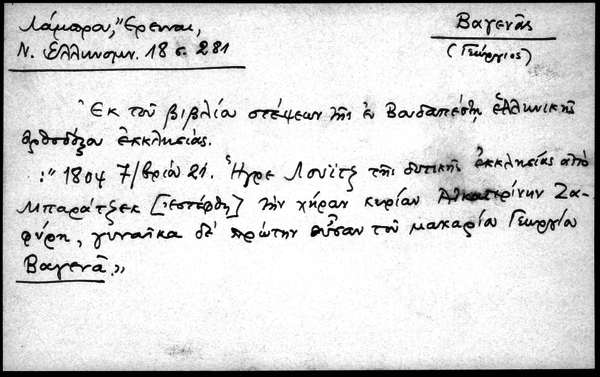 Λάμπρου, "Έρευναι,
Ν. Ἑλληνομν. 18 σ. 281
Βαγενᾶς
(Γεώργιος)
Ἐκ τοῦ βιβλίου στέψεων τῆς ἐν Βουδαπέστῃ ἑλληνικῆς
ὀρθοδόξου ἐκκλησίας.
:" 1804 7/βρίου 21. Ἧγρε Λουΐτζ τῆς δυτικῆς ἐκκλησίας ἀπὸ
Μπαράτζεκ [ἐστέφθη] τὴν χήραν κυρίαν Αἰκατερίνην Ζα-
φύρη, γυναῖκα δὲ πρώτην οὖσαν τοῦ μακαρίου Γεωργίου
Βαγενᾶ.»